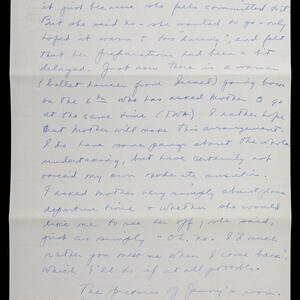 it just because she feels committed to it
But she said no - she wanted to go - only
hoped it wasn't "too lonely", and felt
that her preparations had been a bit
delayed. Just now there is a woman
(ballet dancer from Israel) going back
on the 6th who has asked Mother to go
at the same time (TWA). I rather hope
that Mother will make this arrangement.
I do have some pangs about the whole
undertaking, but have certainly not
voiced my own moderate anxieties.
I asked Mother very simply about plane
departure time & whether she would
like me to see her off; she said,
just as simply "Oh, no. I'd much
rather you meet me when I come back".
Which I'll do if at all possible.
The pictures of Jenny's room